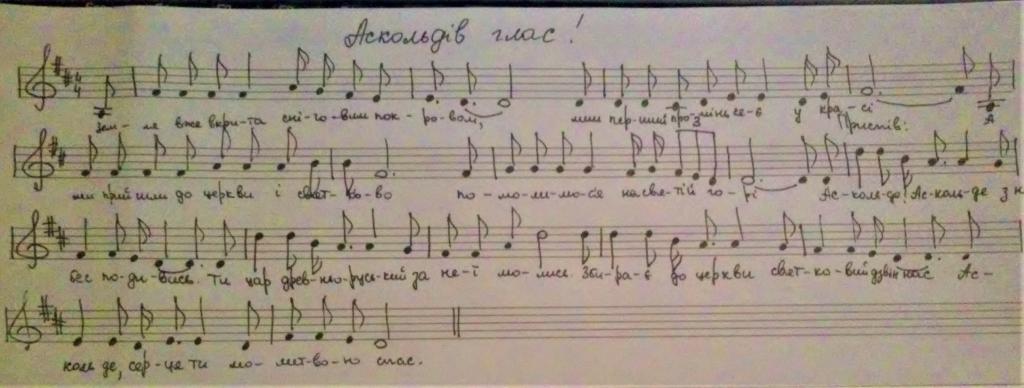 Аскольдів глас!
Зем-ля вже вкри-та сні-го-вим пок-ро-вом, мим пер-ший про-мінь се-є у кра-сі А
Приспів:
ми прийшли до церкви і свят-ко-во по-мо-ли-мо-ся на свя-тій го-рі Ас-коль-до! Ас-коль-де з н
бес по-ди-вись. Ти цар древ-ньо-русь-кий за не-ї мо-лись. Зби-ра-є до церкви свят-ко-вий дзвін нас Ас-
коль де, сер-це ти мо-лит-во-ю спас.